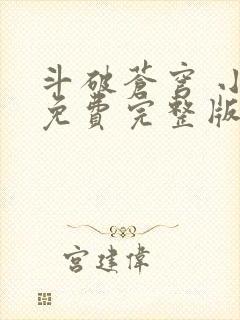 斗破苍穹 小
免费完整版
宫建伟